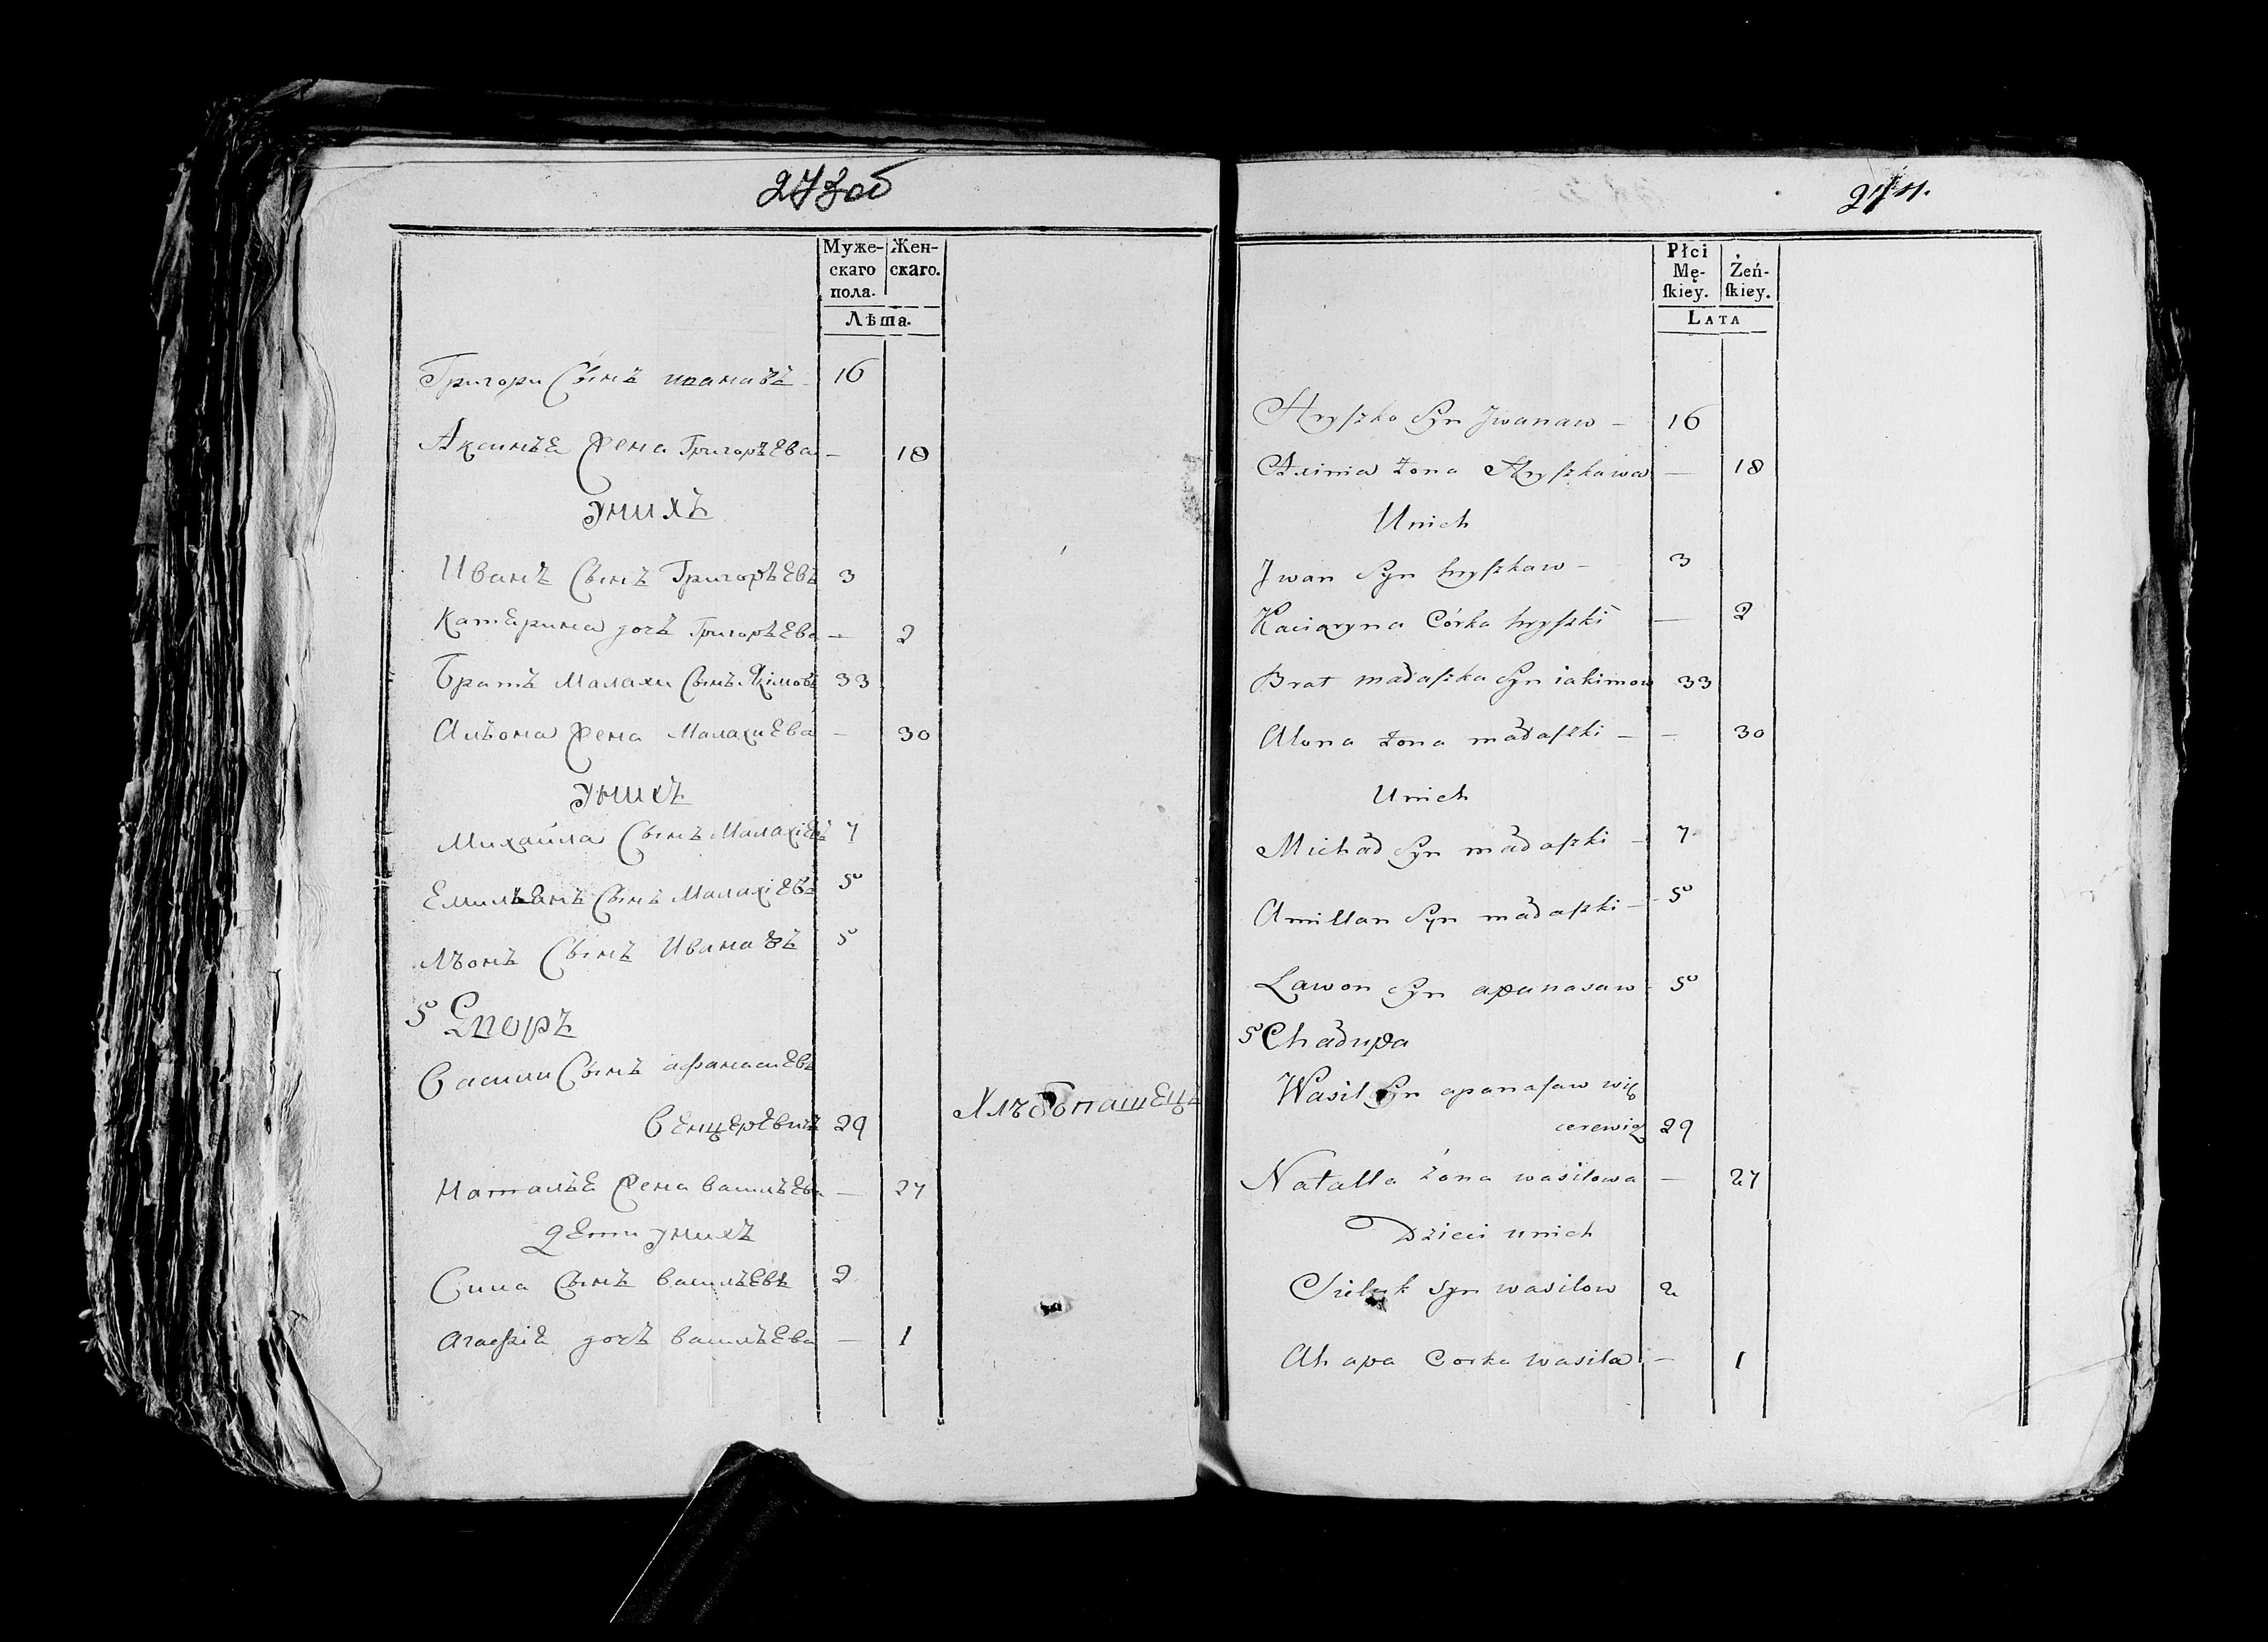 273об
Муже-
скаго
пола.
Жен-
скаго.
Лѣта.
Григори Сынъ ивановъ 16
Аксинъя жена Григоръева — 18
унихъ
Иванъ Сынъ Григоръевъ 3
Катерина дочъ Григоръева — 2
Братъ Малахи Сынъ Якимовъ 33
Алъона жена Малахиева — 30
унихъ
Михайла Сынъ Малахіевъ 7
Емилъянъ Сынъ Малахіевъ 5
Лъонъ Сынъ Ивановъ 5
5 Дворъ
Васили Сынъ афанасиевъ
Венцеревичъ 29 Хлъбопашецъ
Наталъя жена василъева — 27
дети унихъ
Сила Сынъ василъевъ 2
Агафия дочъ василъева — 1
274.
Płci
Mę-
skiey.
Żeń-
skiey.
LATA
Hryszko Syn Jwanaw — 16
Axinia żona Hryszkawa — 18
Unich
Jwan Syn hryszkaw — 3
Kaciaryna Córka hryszki — 2
Brat małaszka Syn iakimow 33
Alona żona małaszki — — 30
Unich
Michał Syn małaszki — 7
Amillan Syn małaszki — 5
Lawon Syn apanasaw 5
5 Chałupa
Wasil Syn apanasaw wię
cerewicz 29
Natalla żona wasilowa — 27
Dzieci unich
Sieluk syn wasilow 2
Ahapa Corka wasila — 1